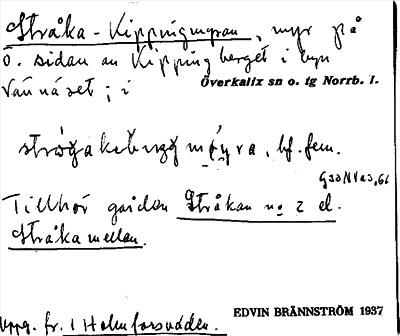 Stråka-Kippingmyran, myr på
ö. sidan av Kippingberget i byn
Vännäset; i
Överkalix sn o. tg Norrb. l.
bf. fem.
Tillhör gården Stråkan no 2 el.
Stråka mellan.
EDVIN BRÄNNSTRÖM 1937
Uppg. fr. i Holmforsudden.